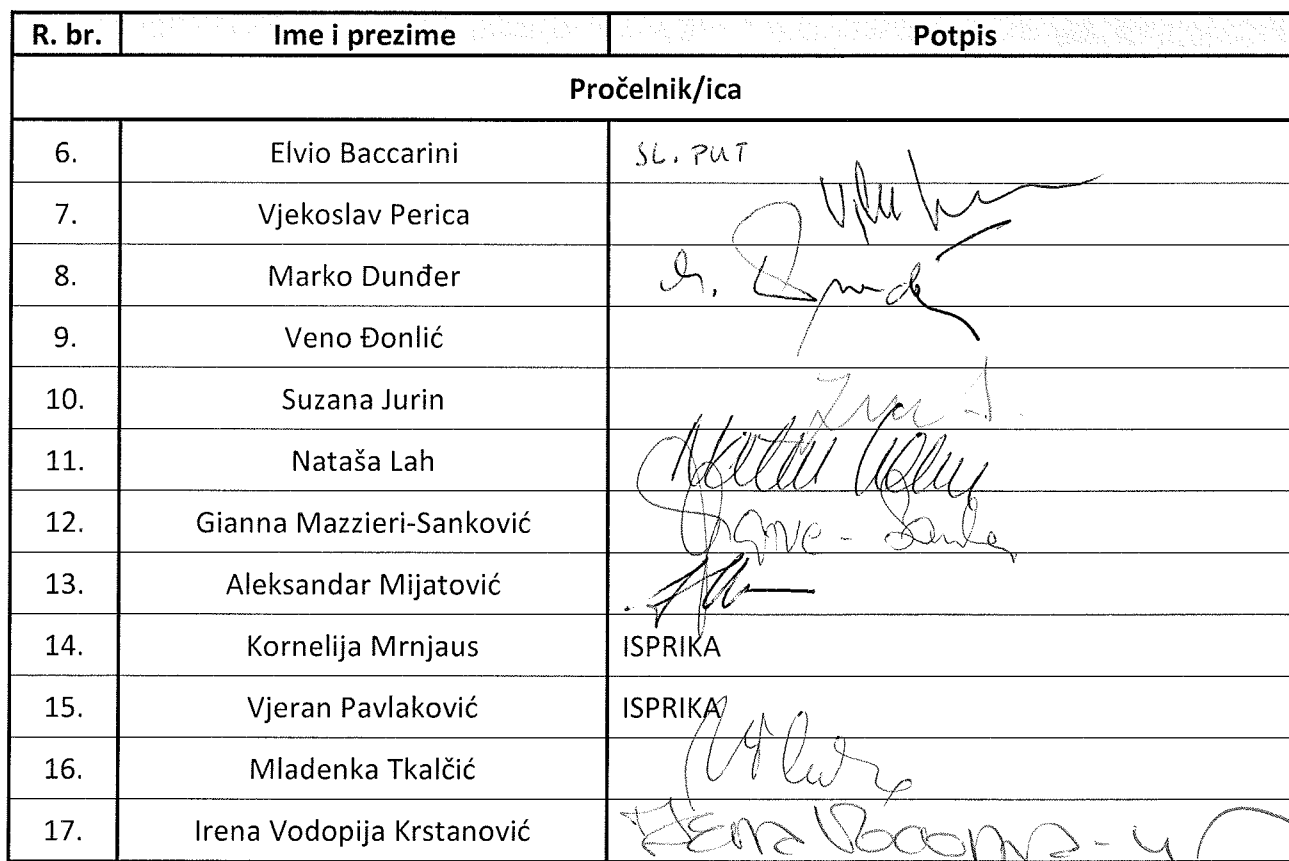 R. br. Ime i prezime Potpis
Pročelnik/ica
6. Elvio Baccarini SL. PUT
7. Vjekoslav Perica
8. Marko Dunđer
9. Veno Đonlić
10. Suzana Jurin
11. Nataša Lah
12. Gianna Mazzieri-Sanković
13. Aleksandar Mijatović
14. Kornelija Mrnjaus ISPRIKA
15. Vjeran Pavlaković ISPRIKA
16. Mladenka Tkalčić
17. Irena Vodopija Krstanović